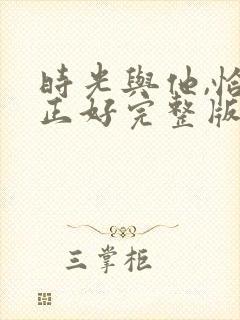 時光與他,恰
正好完整版
三掌柜